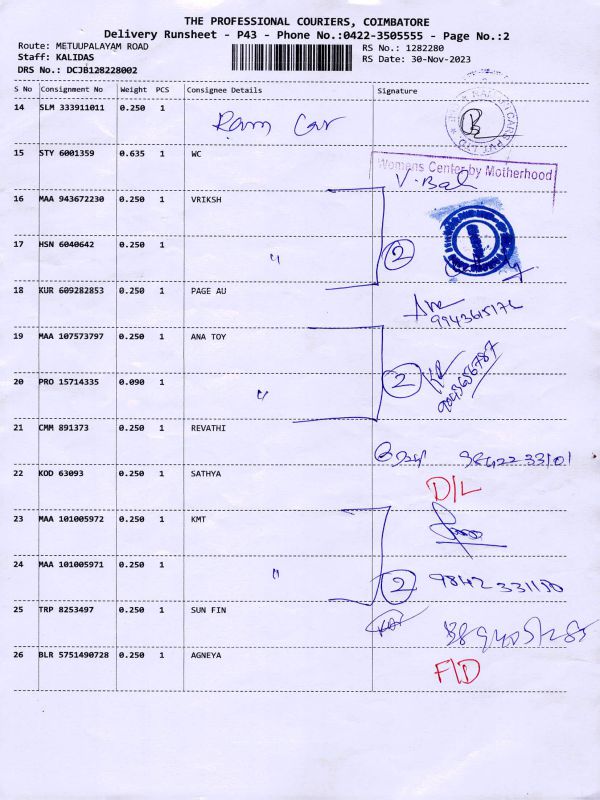 THE PROFESSIONAL COURIERS, COIMBATORE
Delivery Runsheet - P43 - Phone No.:0422-3505555 - Page No.:2
Route: METUUPALAYAM ROAD RS No.: 1282280
Staff: KALIDAS RS Date: 30-Nov-2023
DRS No.: DCJB128228002
S No Consignment No Weight PCS Consignee Details Signature
14 SLM 333911011 0.250 1 Ram Car
15 STY 6001359 0.635 1 WC
Womens Center by Motherhood
V. Bal
16 MAA 943672230 0.250 1 VRIKSH
17 HSN 6040642 0.250 1 " 2
18 KUR 609282853 0.250 1 PAGE AU
19 MAA 107573797 0.250 1 ANA TOY
20 PRO 15714335 0.090 1 " 2
21 CMM 891373 0.250 1 REVATHI
22 KOD 63093 0.250 1 SATHYA D/L
23 MAA 101005972 0.250 1 KMT
24 MAA 101005971 0.250 1 " 2
25 TRP 8253497 0.250 1 SUN FIN
26 BLR 5751490728 0.250 1 AGNEYA F/D